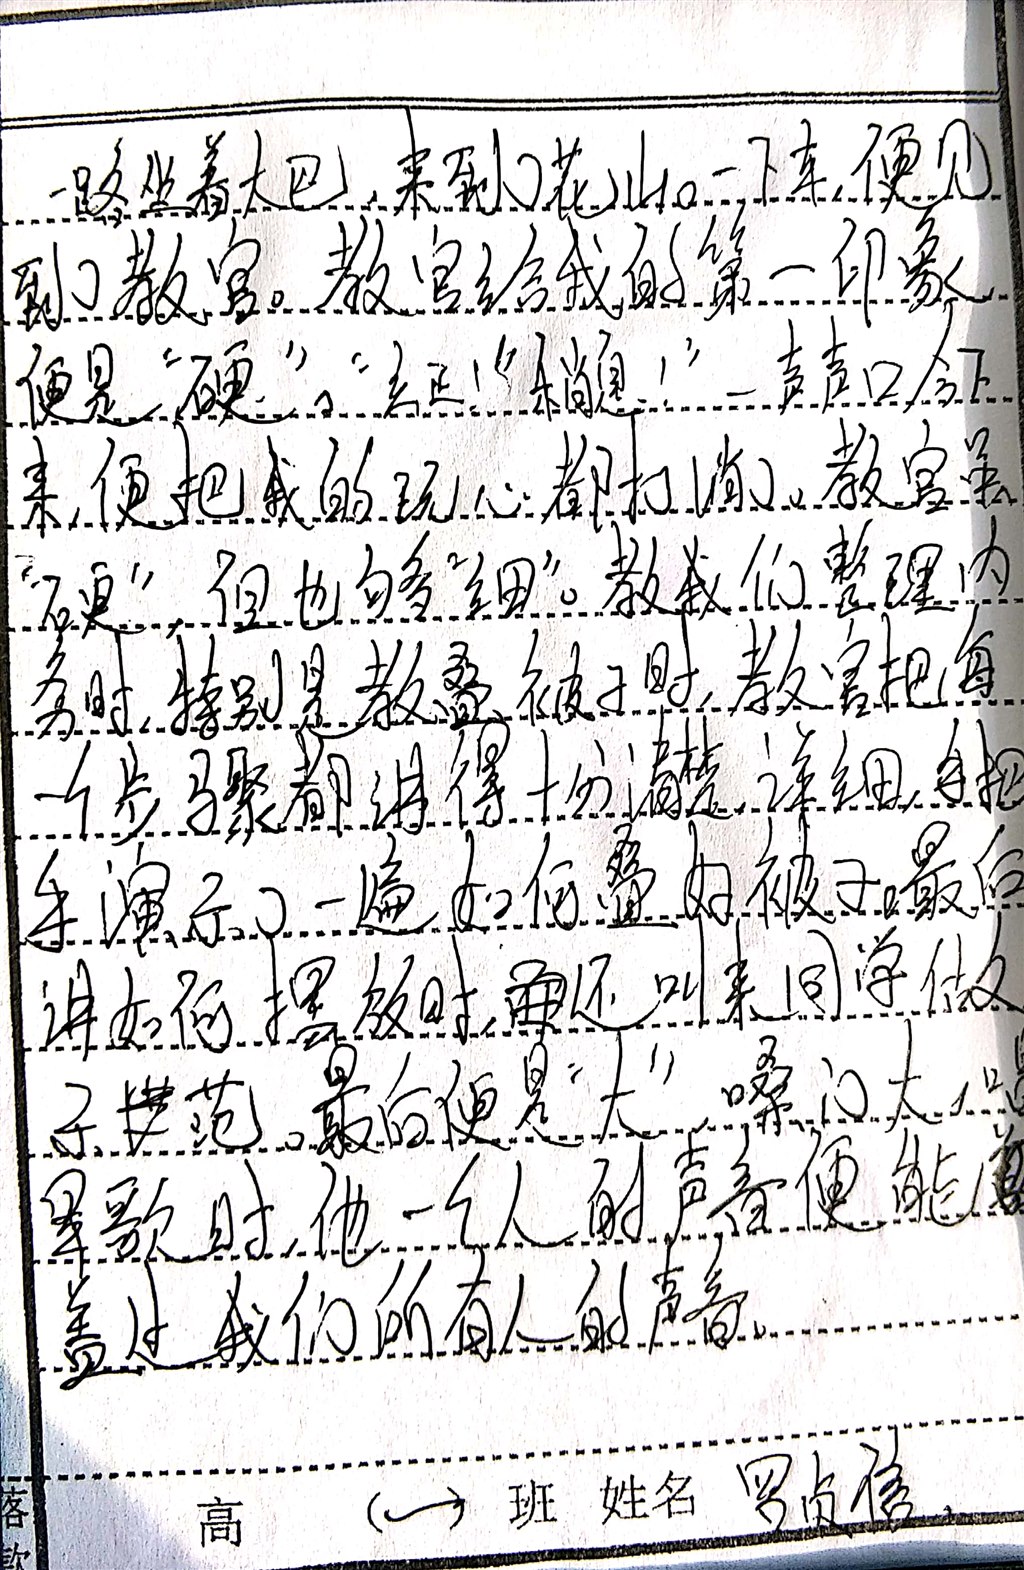 一路坐着大巴，来到了花山。一下车，便见
到了教官。教官给我的第一印象，
便是“硬”。“立正！”“稍息！”一声声口令下
来，便把我的玩心都打消了。教官虽
“硬”，但也够“细”。教我们整理内
务时，特别是教叠被子时，教官把每
一个步骤都讲得十分清楚、详细，手把
手演示了一遍如何叠好被子。最后
讲如何摆放时，还叫来同学做
示模范。最后便是“大”，嗓门大，唱
军歌时，他一个人的声音便能
盖过我们所有人的声音。
高（一）班 姓名 罗贞信
落款